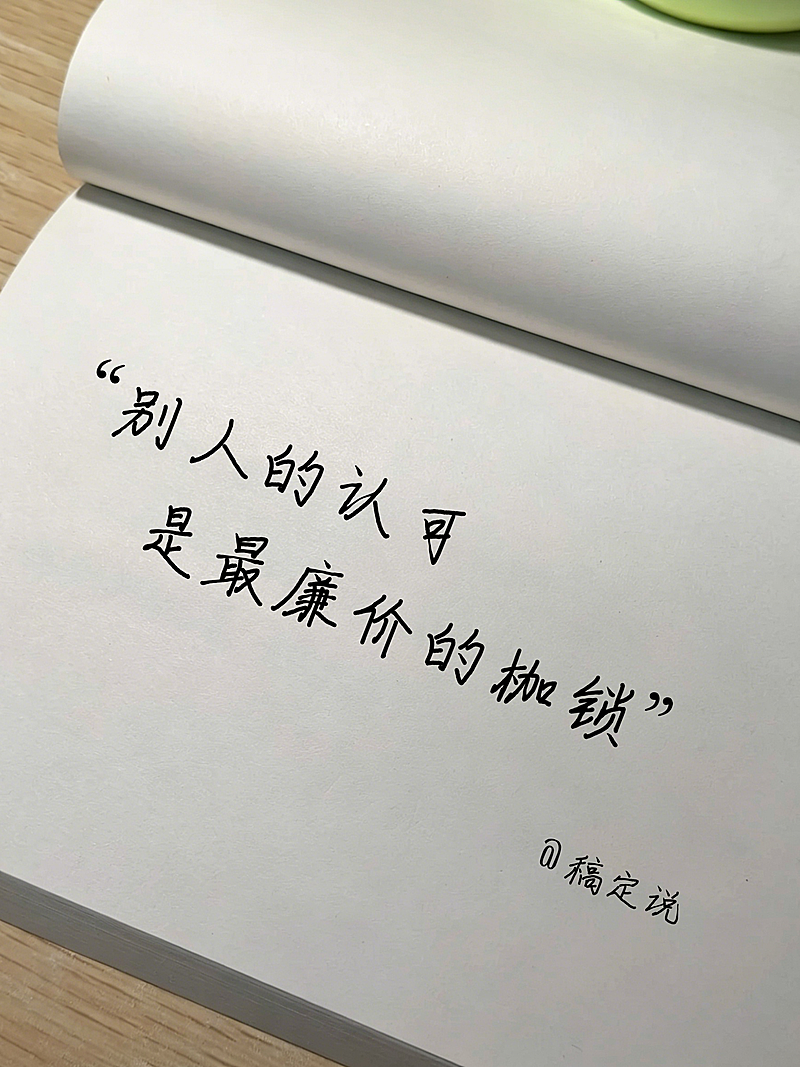 “别人的认可
是最廉价的枷锁”
@稿定说